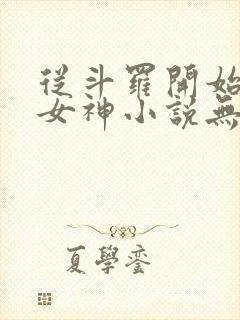 從斗羅開始
女神小說無
夏學鑾